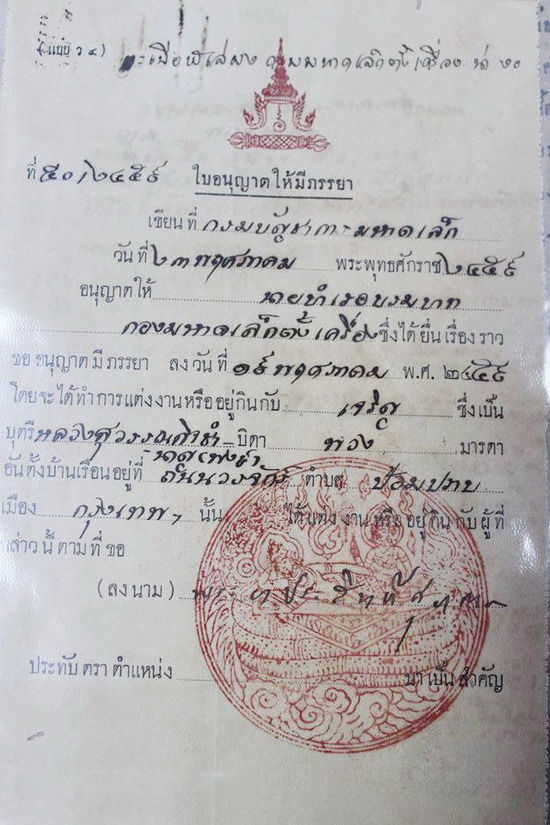 (แบบ ว ๔)
ที่ ๕๐/๒๔๕๙ ใบอนุญาตให้มีภรรยา
เขียนที่ กรมบัญชาการมหาดเล็ก
วันที่ ๒๓ พฤศภาคม พระพุทธศักราช ๒๔๕๙
อนุญาตให้ นายบำเรอบรมบาท
กองมหาดเล็กตั้งเครื่อง ซึ่งได้ยื่นเรื่องราว
ขออนุญาตมีภรรยา ลงวันที่ ๑๕ พฤศภาคม พ.ศ. ๒๔๕๙
โดยจะได้ทำการแต่งงานหรืออยู่กินกับ เจริญ ซึ่งเป็น
บุตรีหลวงสุวรรณ บิดา พวง มารดา
อันตั้งบ้านเรือนอยู่ที่ ถนนวรจักร์ ตำบล ป้อมปราบ
เมือง กรุงเทพฯ นั้น ได้แต่งงานหรืออยู่กินกับผู้ที่
กล่าวนี้ตามที่ขอ
(ลงนาม)
ประทับตราตำแหน่ง มาเป็นสำคัญ